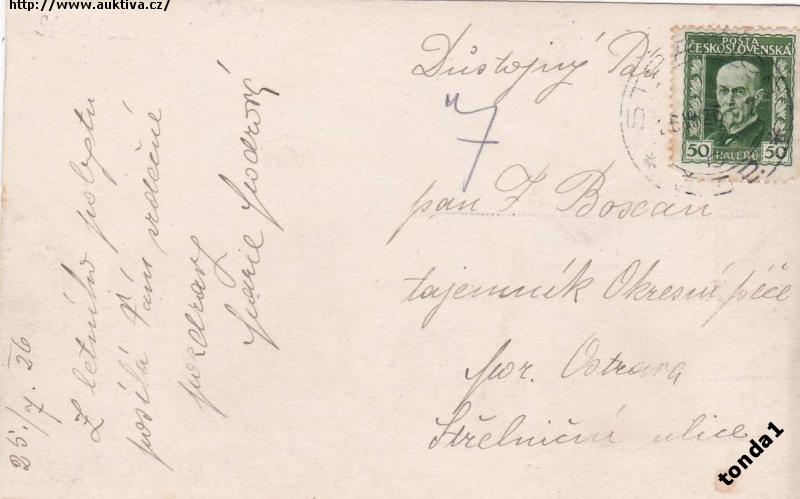 http://www.auktiva.cz/
25./7. 26
Z letního pobytu
posílá Vám srdečné
pozdravy
Marie
Důstojný Pán
7
pan F Boscan
tajemník Okresní péče
mor. Ostrava
Střelniční ulice
POŠTA
ČESKOSLOVENSKÁ
50 HALÉŘŮ 50
tonda1